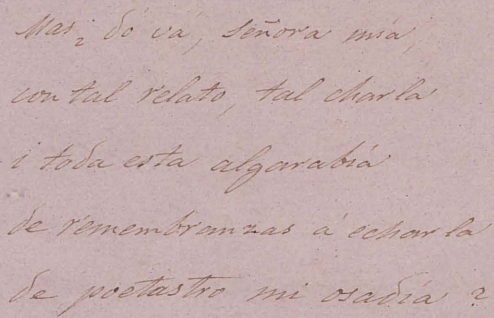 Mas ¿dó va, Señora mía,
con tal relato, tal charla
i toda esta algarabía
de remembranzas á echarla
de poetastro mi osadía?